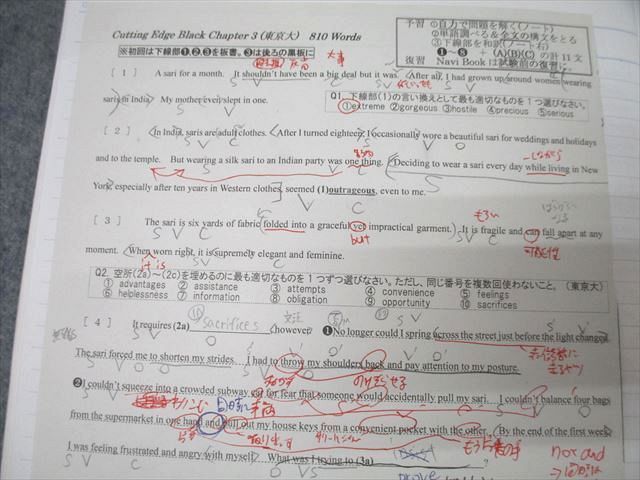 Cutting Edge Black Chapter 3 (東京大) 810 Words
※初回は下線部❶,❷,❸を板書。❸は後ろの黒板に
予習 ①自力で問題を解く(ノート)
②単語調べる&全文の構文をとる
③下線部を和訳(ノート右)
❶~❽ + (A)(B)(C) の計11文
復習 Navi Book は試験前の復習に
大事
[ 1 ] A sari for a month. It shouldn't have been a big deal but it was. After all, I had grown up around women wearing
saris in India. My mother even slept in one.
Q1. 下線部(1)の言い換えとして最も適切なものを1つ選びなさい。
①extreme ②gorgeous ③hostile ④precious ⑤serious
[ 2 ] In India, saris are adult clothes. After I turned eighteen, I occasionally wore a beautiful sari for weddings and holidays
and to the temple. But wearing a silk sari to an Indian party was one thing. Deciding to wear a sari every day while living in New
York, especially after ten years in Western clothes, seemed (1)outrageous, even to me.
[ 3 ] The sari is six yards of fabric folded into a graceful yet impractical garment. It is fragile and can fall apart at any
but
もろい
可能性
moment. When worn right, it is supremely elegant and feminine.
it is
Q2. 空所(2a)~(2c)を埋めるのに最も適切なものを1つずつ選びなさい。ただし、同じ番号を複数回使わないこと。 (東京大)
① advantages ② assistance ③ attempts ④ convenience ⑤ feelings
⑥ helplessness ⑦ information ⑧ obligation ⑨ opportunity ⑩ sacrifices
[ 4 ] It requires (2a) ⑩ sacrifices, however. ❶No longer could I spring across the street just before the light changed.
The sari forced me to shorten my strides. I had to throw my shoulders back and pay attention to my posture.
❷I couldn't squeeze into a crowded subway car for fear that someone would accidentally pull my sari. I couldn't balance four bags
from the supermarket in one hand and pull out my house keys from a convenient pocket with the other. By the end of the first week,
もう片方の手
I was feeling frustrated and angry with myself. What was I trying to (3a) ?
nor and
prove